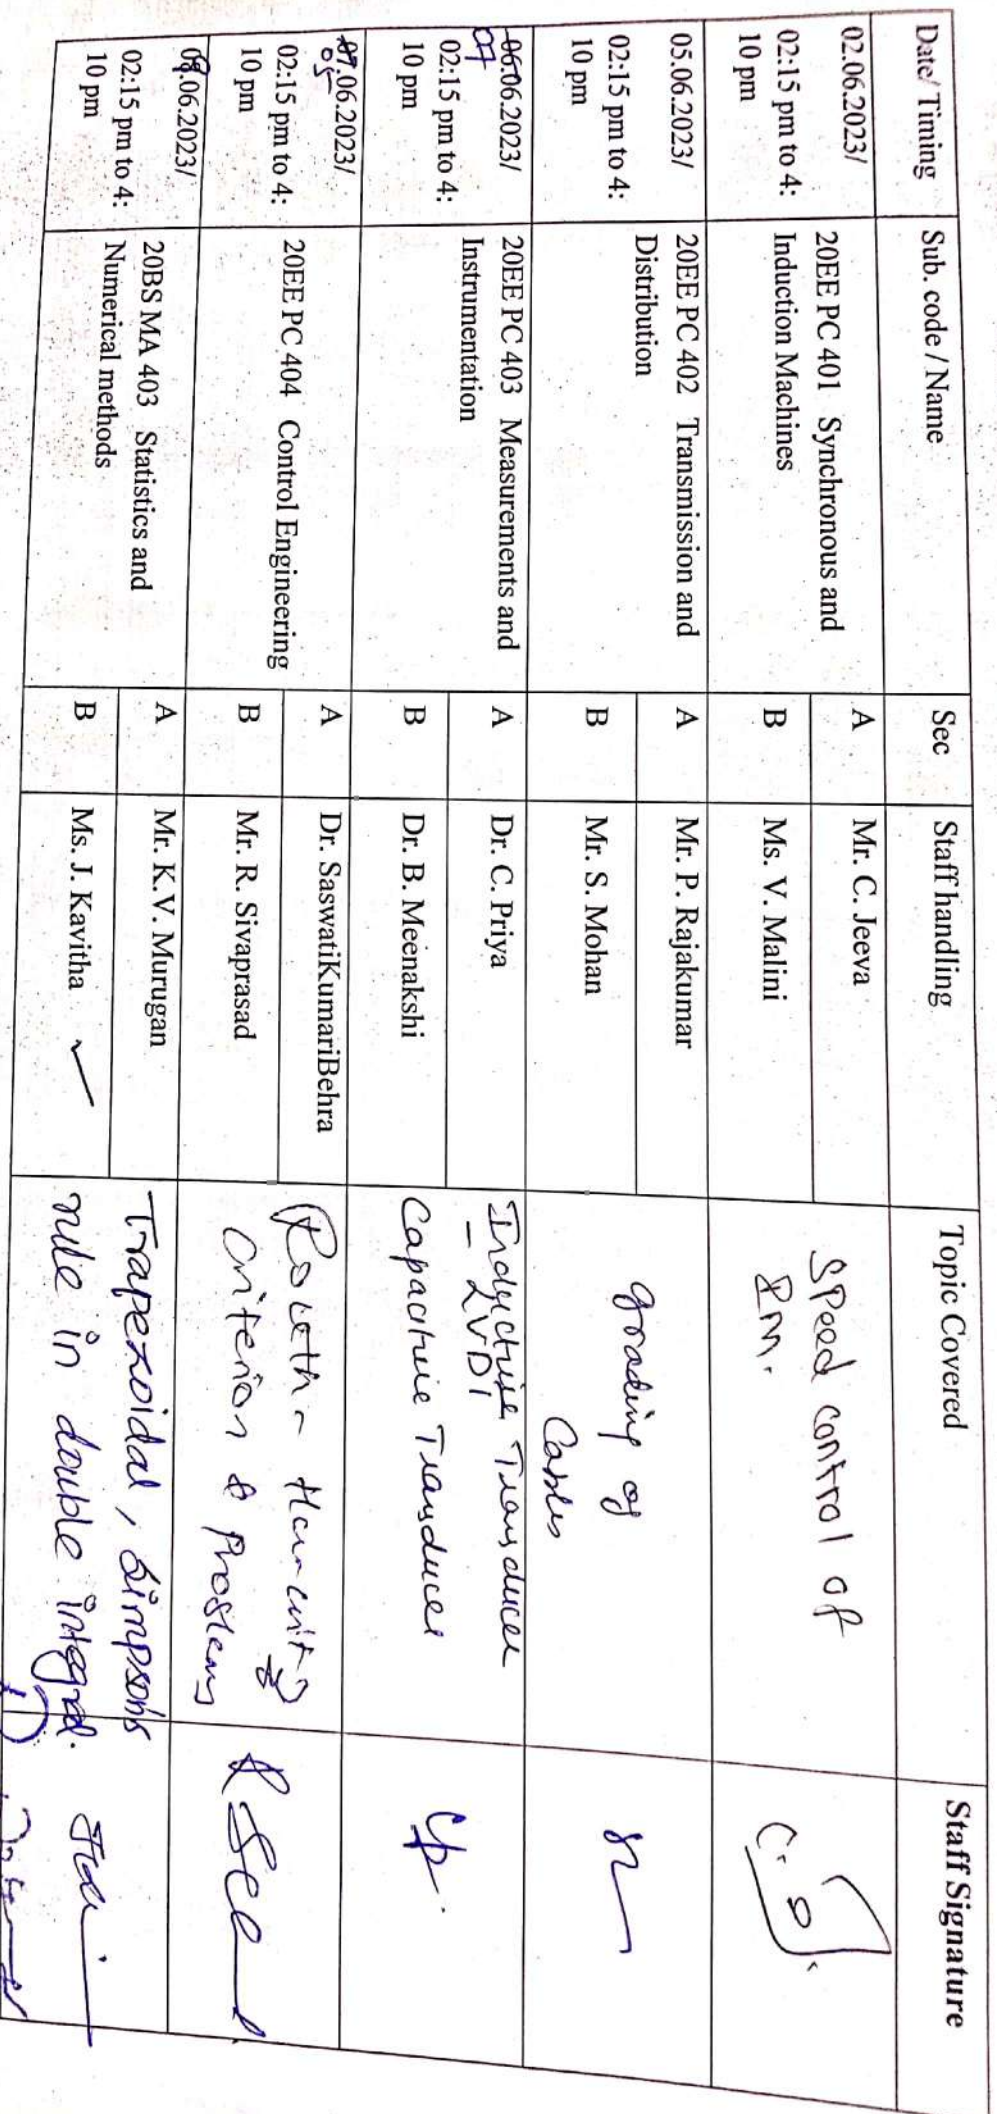 Date/ Timing
Sub. code / Name
Sec
Staff handling
Topic Covered
Staff Signature
02.06.2023/
02:15 pm to 4:
10 pm
20EE PC 401 Synchronous and
Induction Machines
A
Mr. C. Jeeva
B
Ms. V. Malini
Speed control of
IM.
05.06.2023/
02:15 pm to 4:
10 pm
20EE PC 402 Transmission and
Distribution
A
Mr. P. Rajakumar
B
Mr. S. Mohan
grading of
Cables
06.06.2023/
07
02:15 pm to 4:
10 pm
20EE PC 403 Measurements and
Instrumentation
A
Dr. C. Priya
B
Dr. B. Meenakshi
Inductive Transducer
- LVDT
Capacitive Transducer
07.06.2023/
02:15 pm to 4:
10 pm
20EE PC 404 Control Engineering
A
Dr. SaswatiKumariBehra
B
Mr. R. Sivaprasad
Routh - Hurwitz
Criterion & Problems
.06.2023/
02:15 pm to 4:
10 pm
20BS MA 403 Statistics and
Numerical methods
A
Mr. K.V. Murugan
B
Ms. J. Kavitha
Trapezoidal, Simpsons
rule in double integral.